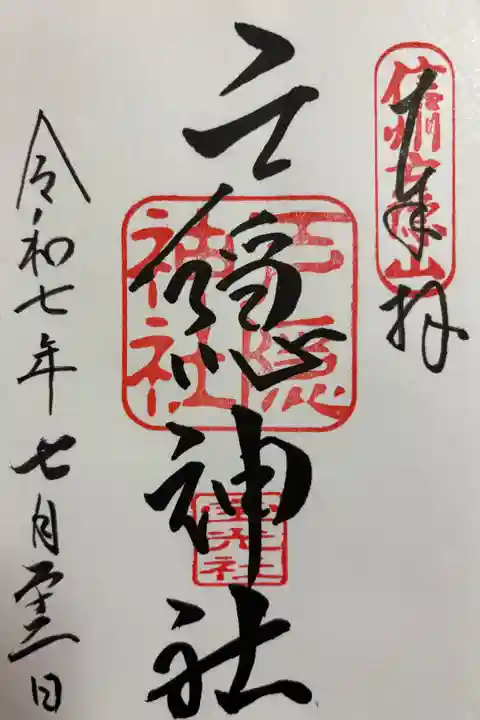 奉拝
信州戸隠山
戸隠神社
戸隠神社
宝光社
令和七年七月廿二日